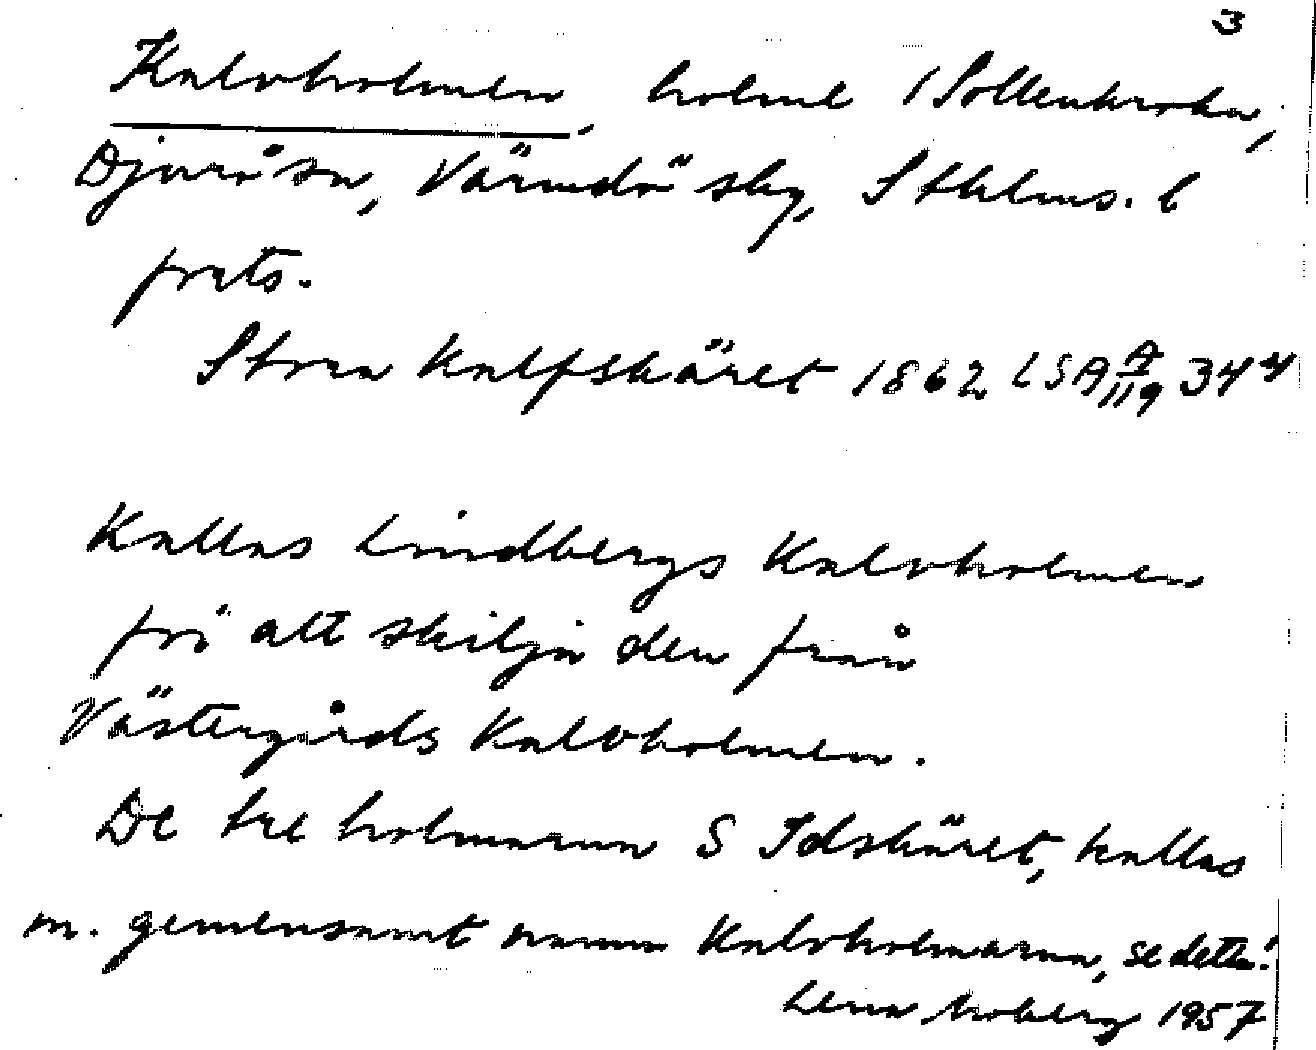 3
Kalvholmen, holme i Sollenkroka,
Djurö sn, Värmdö skg, Sthlms. l
frats.
Stora Kalfskäret 1862 LSA A/119 34⁴
Kallas Lindbergs Kalvholmen
för att skilja den från
Västergårds Kalvholmen.
De tre holmarna S Idskäret, kallas
m. gemensamt namn Kalvholmarna, se detta!
Lena Moberg 1957